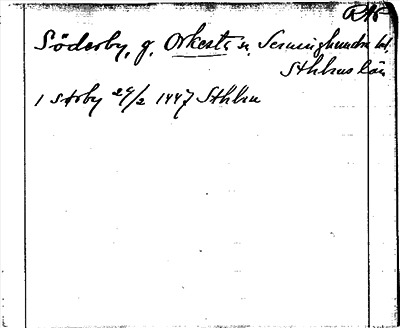 RAP
Söderby, g. Orkesta sn. Seminghundra hd.
Sthlms län
i Sörby 29/2 1447 Sthlm